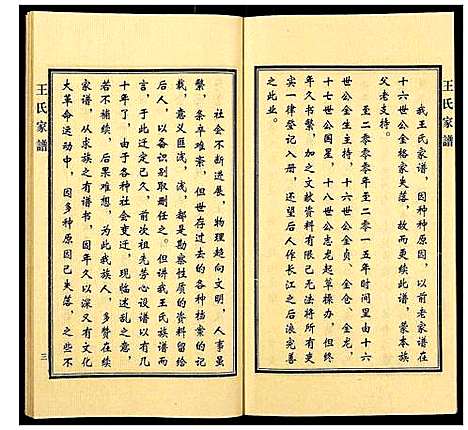 王氏家譜
我王氏家谱，因种种原因，以前老家谱在
十六世公金榜家失落，故而更续此谱，蒙本族
父老支持。
至二零零零年至二零一五年时间里由十六
世公金生主持，十六世公金贞、金仓、金龙，
十七世公国星，十八世公志龙起草操办，但终
年久书繁，加之文献资料有限已无法将所有吏
实一律登记入册，还望后人作长江之后浪完善
之此业。
社会不断进展，物理超向文明，人事虽
繁，条卒难案，但世存过去的各种档案的记
载，意义匪浅，浅，都是勘察性质的资料留给
后人，以备识别取删任之。但讲我王氏族谱而
言，于此迁定已久，前次祖先劳心设谱以有几
十年了，由于各种社会变迁，现临述乱之意，
若不补续，后果难想，为此我族人，多赞在续
家谱，从求族之有谱书，因年久以深又有文化
大革命运动中，因多种原因已失落，之些不
王氏家譜
三